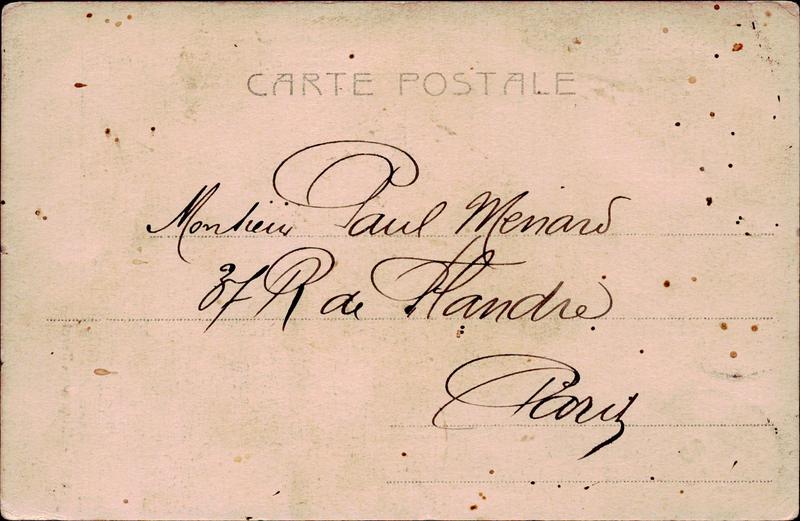 CARTE POSTALE
Monsieur Paul Menard
37 R de Flandre
Paris